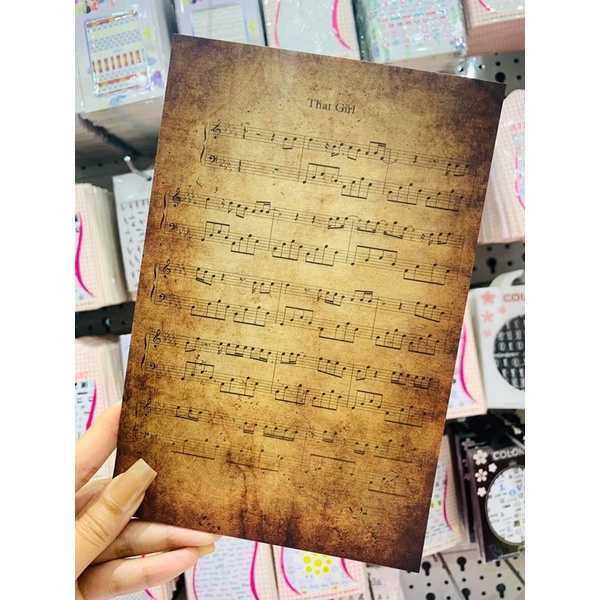 That Girl
COLO
COLOR